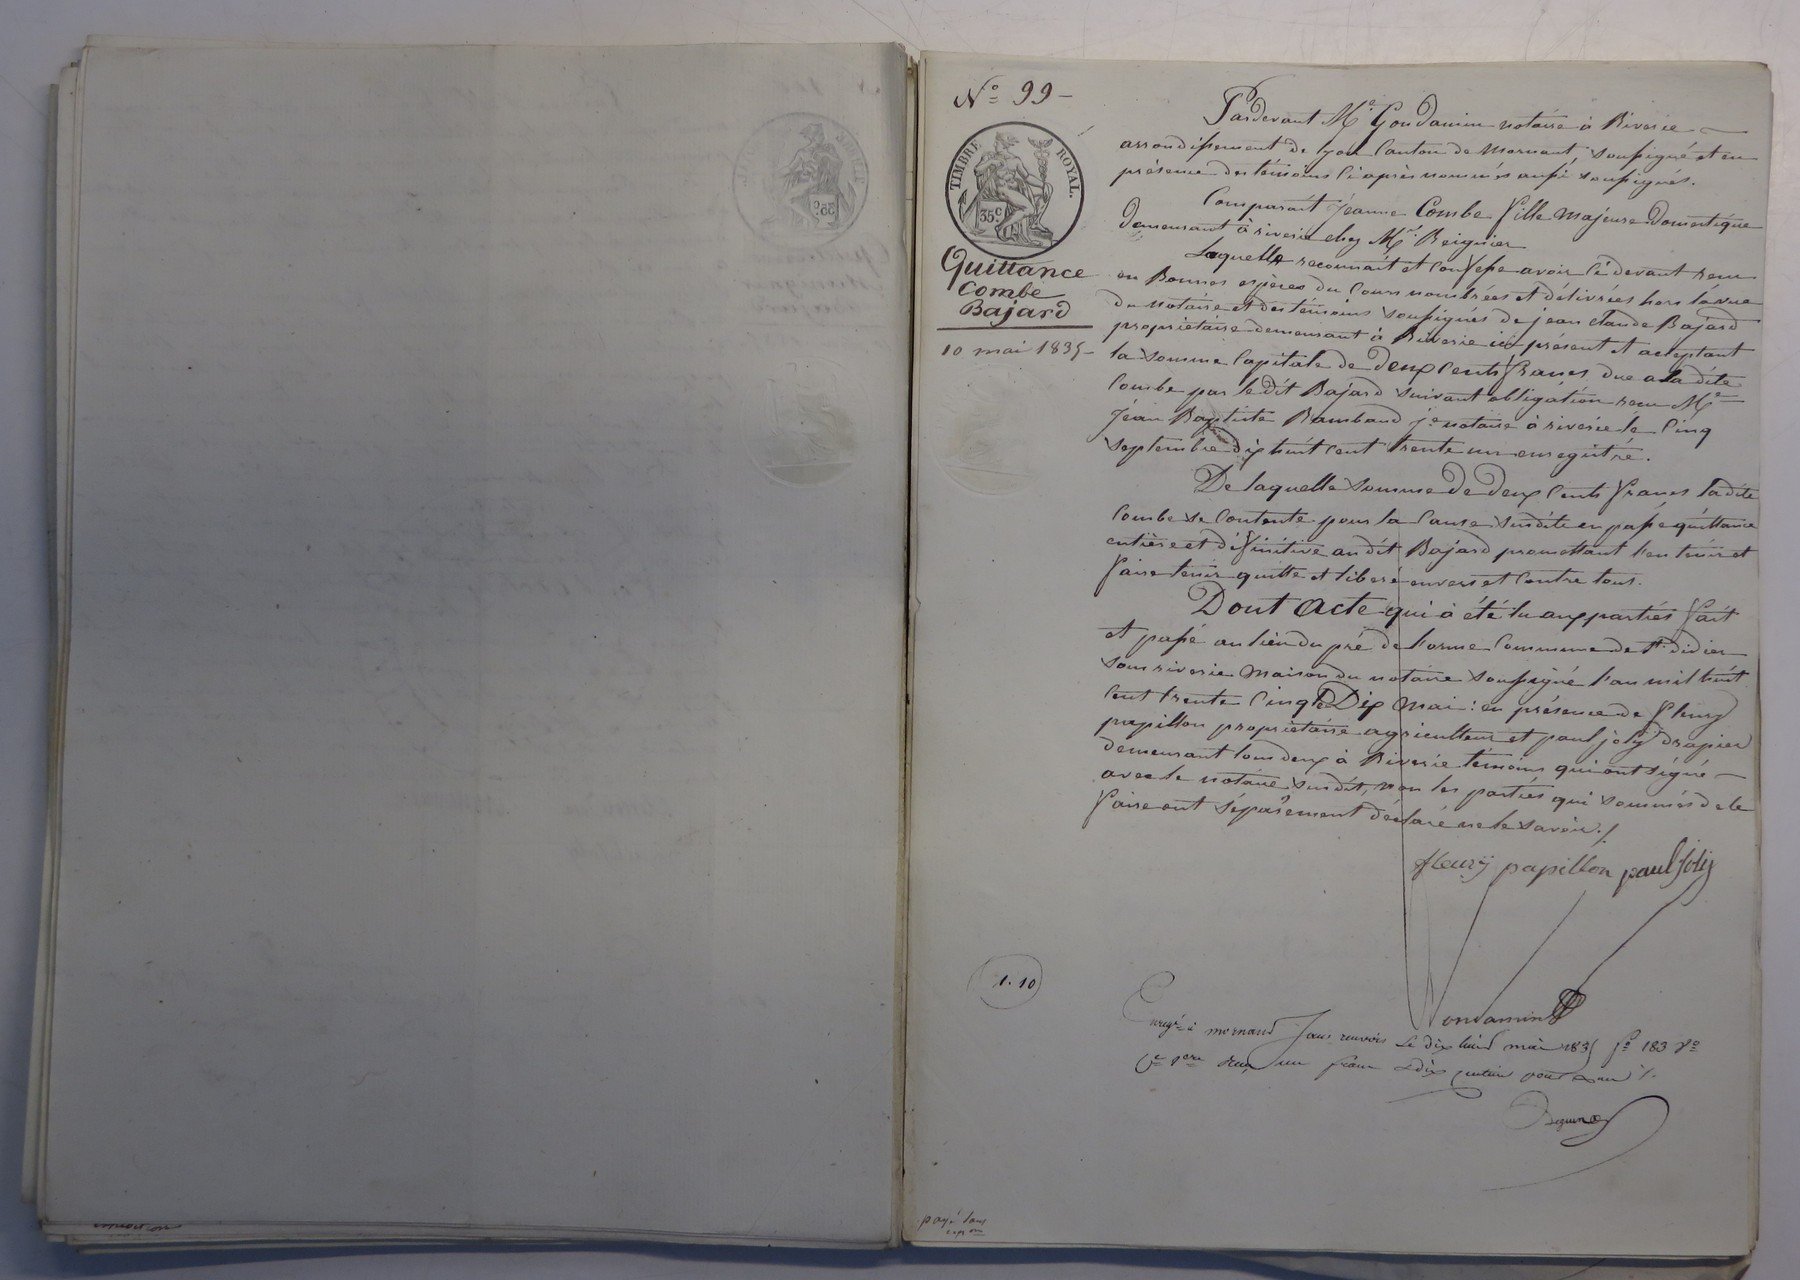 N.º 99 –
TIMBRE ROYAL.
35.c
Quittance
Combe
Bajard
10 mai 1835 –
Pardevant Me Goudamin notaire à Riverie –
arrondissement de Lyon Canton de Mornant, soussigné et en
présence des témoins ci après nommés aussi soussignés.
Comparait jeanne Combe fille majeure domestique
demeurant à riverie chez Mr. Reignier
Laquelle reconnait et confesse avoir ci devant reçu
en Bonnes espèces du Cours nombrées et délivrées hors la vue
du notaire et des témoins soussignés de jean claude Bajard
propriétaire demeurant à Riverie ici présent et acceptant
la somme Capitale de deux Cents francs due a la dite
Combe par le dit Bajard suivant obligation reçu Me
Jean Baptiste Rambaud je notaire à riverie le Cinq
septembre dix huit cent trente un enregistré.
De laquelle somme de deux Cents francs la dite
Combe se Contente pour la Cause susdite en passe quittance
entière et définitive au dit Bajard promettant l'en tenir et
faire tenir quitte et libéré envers et contre tous.
Dont acte qui à été lu aux parties fait
et passé au lieu du pré de l'orme Commune de St. didier
sous riverie maison du notaire soussigné l'an mil huit
cent trente Cinq le Dix mai : en présence de fleury
papillon propriétaire agriculteur et paul joly drapier
demeurant tous deux à Riverie témoins qui ont signé –
avec le notaire susdit, non les parties qui sommés de le
faire ont séparément déclaré ne le savoir ./.
fleury papillon paul Joly
Goudamin
1. 10
Enregé à mornant sans renvois le dix huit mai 1835 fo 183 Vo
Ce 1ere reçu un franc & dix centimes pour
payé sans